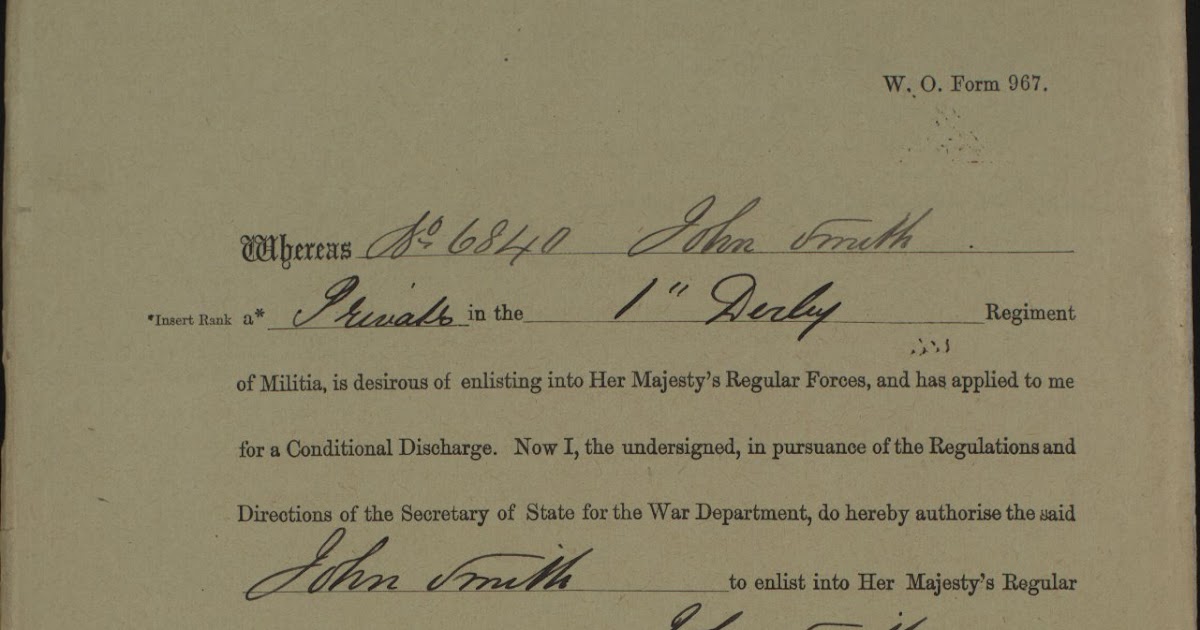 W. O. Form 967.
Whereas No 6840 John Smith .
*Insert Rank a* Private in the 1" Derby Regiment
of Militia, is desirous of enlisting into Her Majesty's Regular Forces, and has applied to me
for a Conditional Discharge. Now I, the undersigned, in pursuance of the Regulations and
Directions of the Secretary of State for the War Department, do hereby authorise the said
John Smith to enlist into Her Majesty's Regular